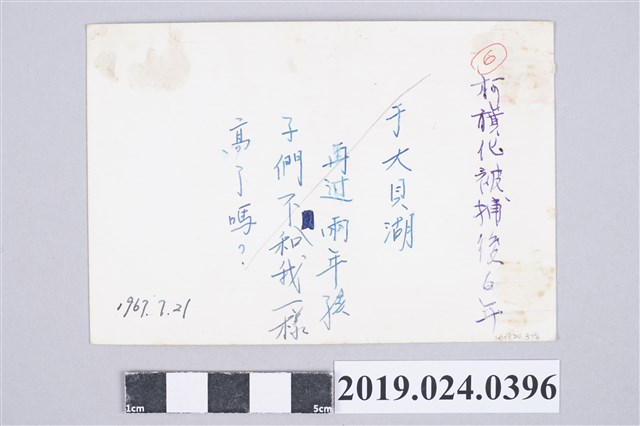 ⑥
柯旗化被捕後6年
于大貝湖
再过兩年孩
子們不和我一樣
高了嗎？
1967.7.21
1cm
5cm
2019.024.0396